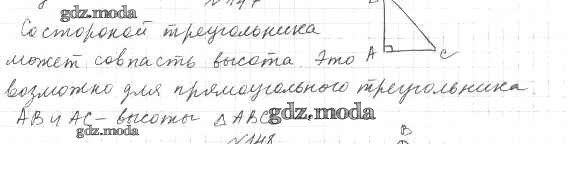 gdz.moda
Со стороной треугольника
может совпасть высота. Это A C
возможно для прямоугольного треугольника.
AB и AC – высоты △ABC gdz.moda
gdz.moda
B
№148